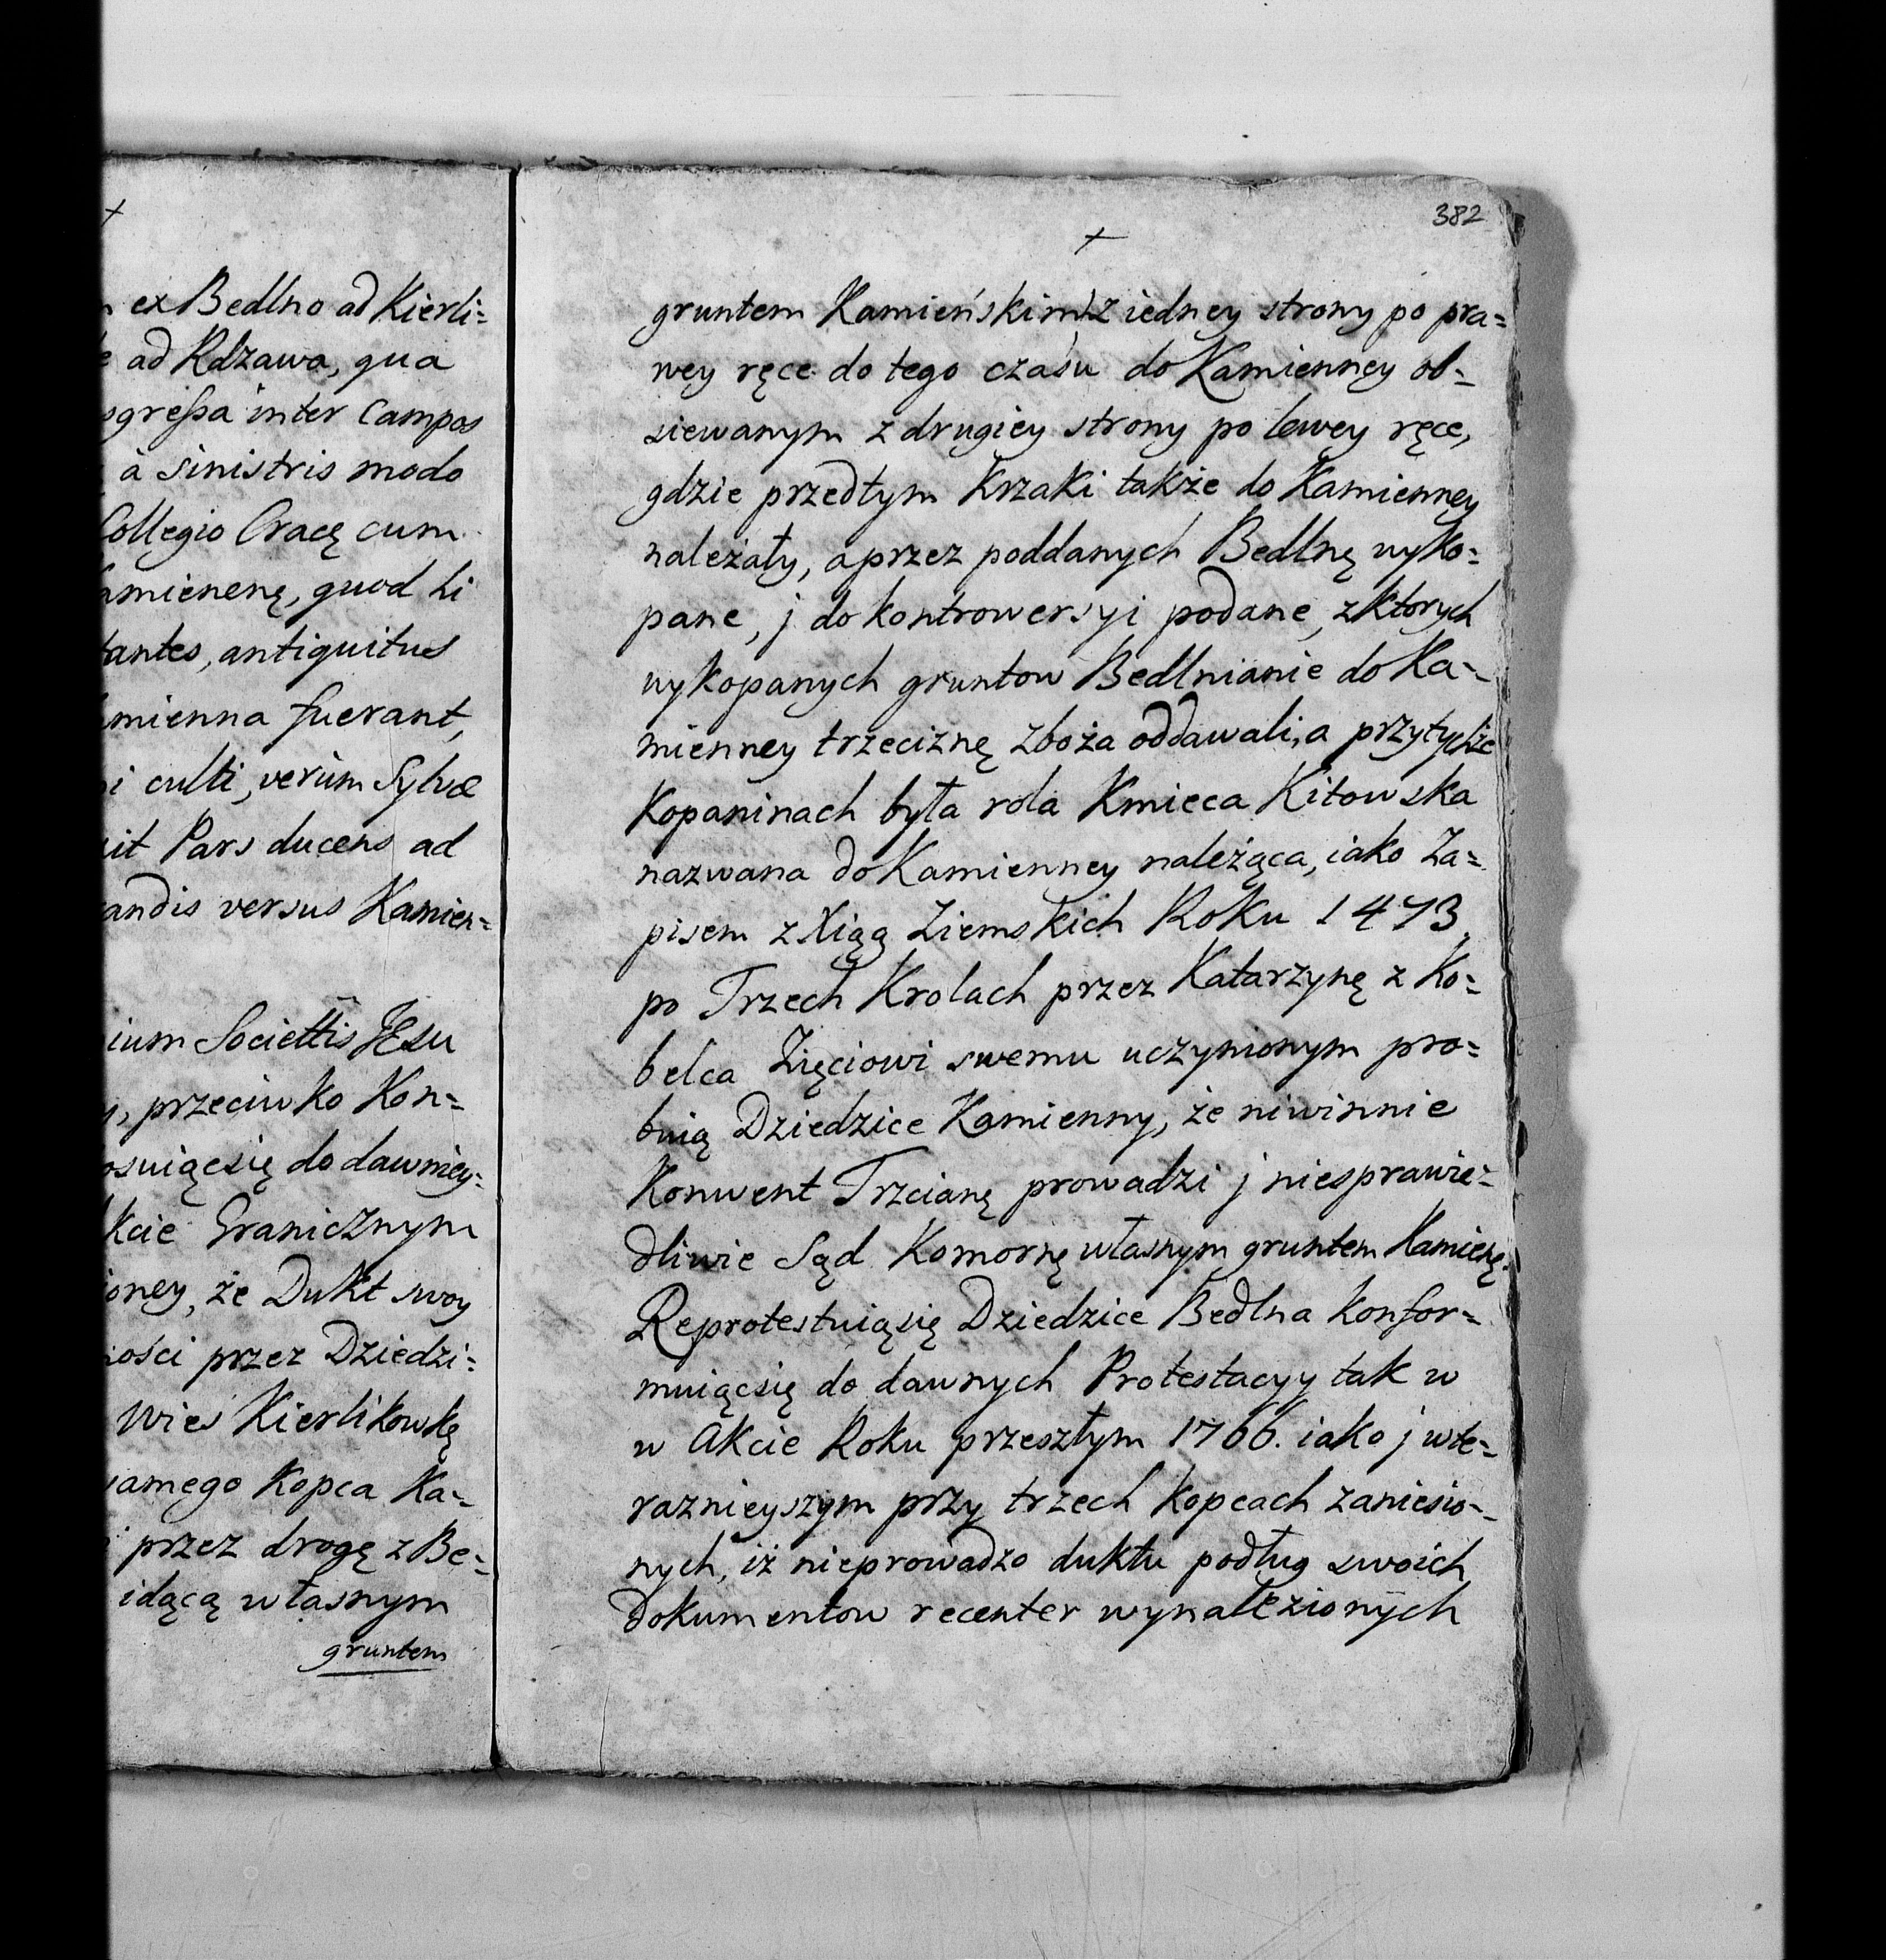 +
ex Bedlno ad Kierli=
ad Rdzawa, qua
ogreßa inter Campos
à sinistris modo
Collegio Cracę cum
amienenę, quod hi
tantes, antiquitus
mienna fuerant,
i culti, verùm Sylvæ
it Pars ducens ad
andis versus Kamien=
ium Societtis JEsu
przeciwko Kon=
osuiącsię do dawniey=
kcie Granicznym
oney, że Dukt swoy
ości przez Dziedzi=
Wieś Kierlikowkę
amego Kopca Ka=
przez drogę z Be=
idącą własnym
gruntem
382
+
gruntem Kamieńskim z iedney strony po pra=
wey ręce do tego czasu do Kamienney ob=
siewanym z drugiey strony po lewey ręce,
gdzie przedtym Krzaki także do Kamienney
należały, a przez poddanych Bedlnę wyko=
pane, j do kontrowersyi podane, z ktorych
wykopanych gruntow Bedlnianie do Ka=
mienney trzeciznę zboża oddawali, a przytychże
Kopaninach była rola Kmieca Kitowska
nazwana do Kamienney należąca, iako Za=
pisem z Xiąg Ziemskich Roku 1473.
po Trzech Krolach przez Katarzynę z Ko=
belca Zięciowi swemu uczynionym pro=
buią Dziedzice Kamienny, że niwinnie
Konwent Trzcianę prowadzi j niesprawie=
dliwie Sąd Komornę własnym gruntem Kamienę.
Reprotestuiąsię Dziedzice Bedlna Konfor=
muiącsię do dawnych Protestacyy tak w
w Akcie Roku przeszłym 1766. iako j wte=
raznieyszym przy trzech kopcach zaniesio=
nych, iż nieprowadzo duktu podług swoich
dokumentow recenter wynalezionych